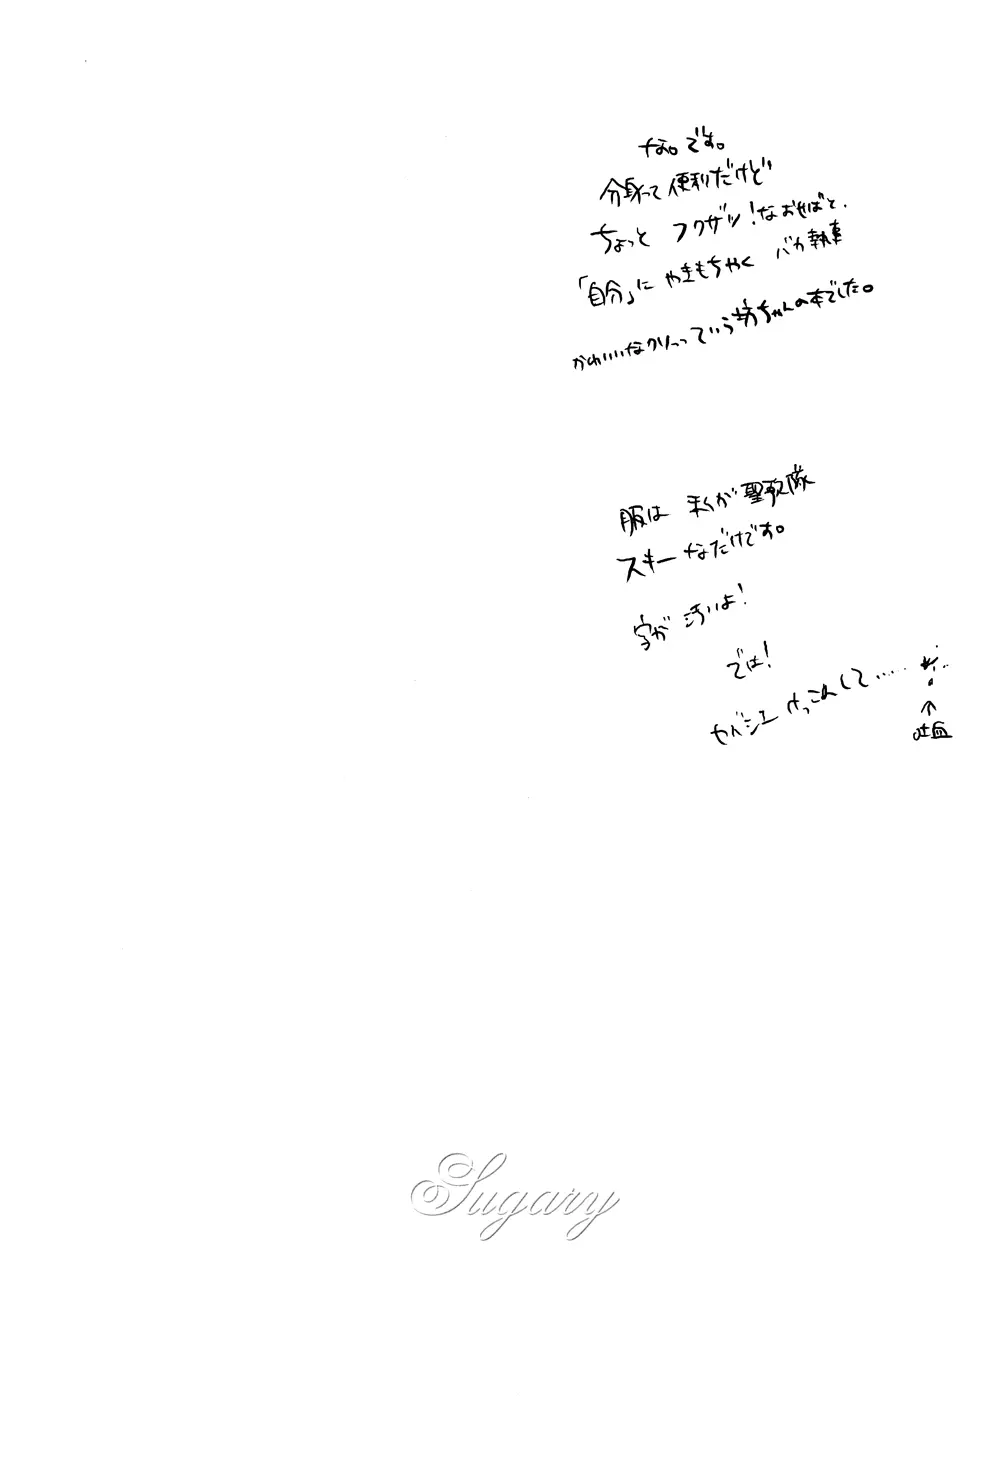 な。です。
分身って便利だけど
ちょっと フクザツ!なおせばと、
「自分」に やきもちやく バカ執事
かわいいなクソっっていう坊ちゃんの本でした。
服は 末くが聖歌隊
スキーなだけです。
字が汚いよ!
では!
セバシエけっこんして……
↑
吐血
Sugary